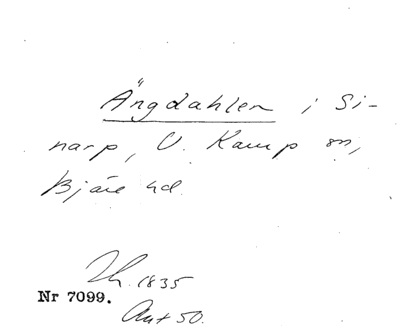 Ängdahlen i Si-
narp, V. Karup sn,
Bjäre hd.
1835
Nr 7099.
Ant 50.